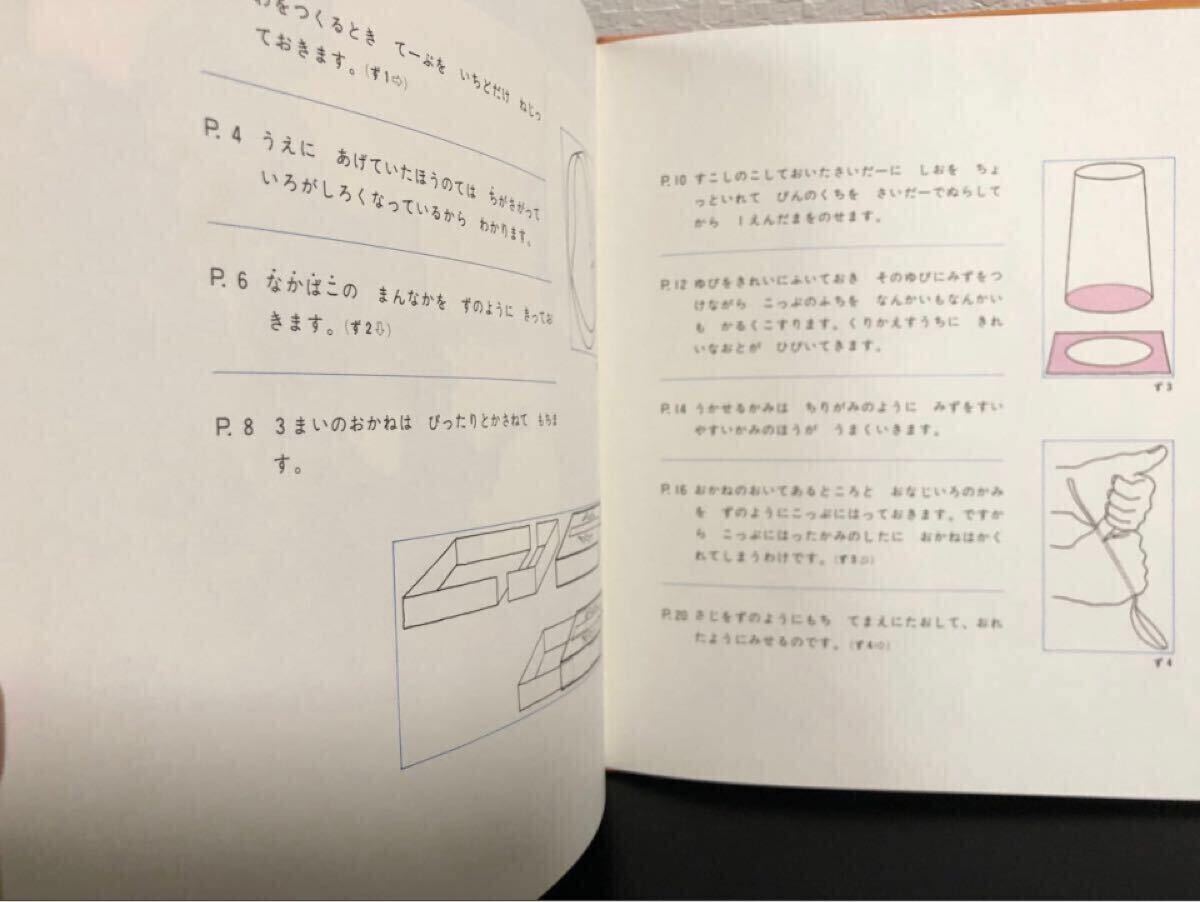 わをつくるとき てーぷを いちどだけ ねじっ
ておきます。(ず1⇨)
P. 4 うえに あげていたほうのては ちがさがって
いろがしろくなっているから わかります。
P. 6 なかばこの まんなかを ずのように きってお
きます。(ず2⇩)
P. 8 3まいのおかねは ぴったりとかさねて もちま
す。
P.10 すこしのこしておいたさいだーに しおを ちょ
っといれて びんのくちを さいだーでぬらして
から 1えんだまをのせます。
P.12 ゆびをきれいにふいておき そのゆびにみずをつ
けながら こっぷのふちを なんかいもなんかい
も かるくこすります。くりかえすうちに きれ
いなおとが ひびいてきます。
P.14 うかせるかみは ちりがみのように みずをすい
やすいかみのほうが うまくいきます。
P.16 おかねのおいてあるところと おなじいろのかみ
を ずのようにこっぷにはっておきます。ですか
ら こっぷにはったかみのしたに おかねはかく
れてしまうわけです。(ず3⇨)
P.20 さじをずのようにもち てまえにたおして、おれ
たようにみせるのです。(ず4⇨)
ず3
ず4